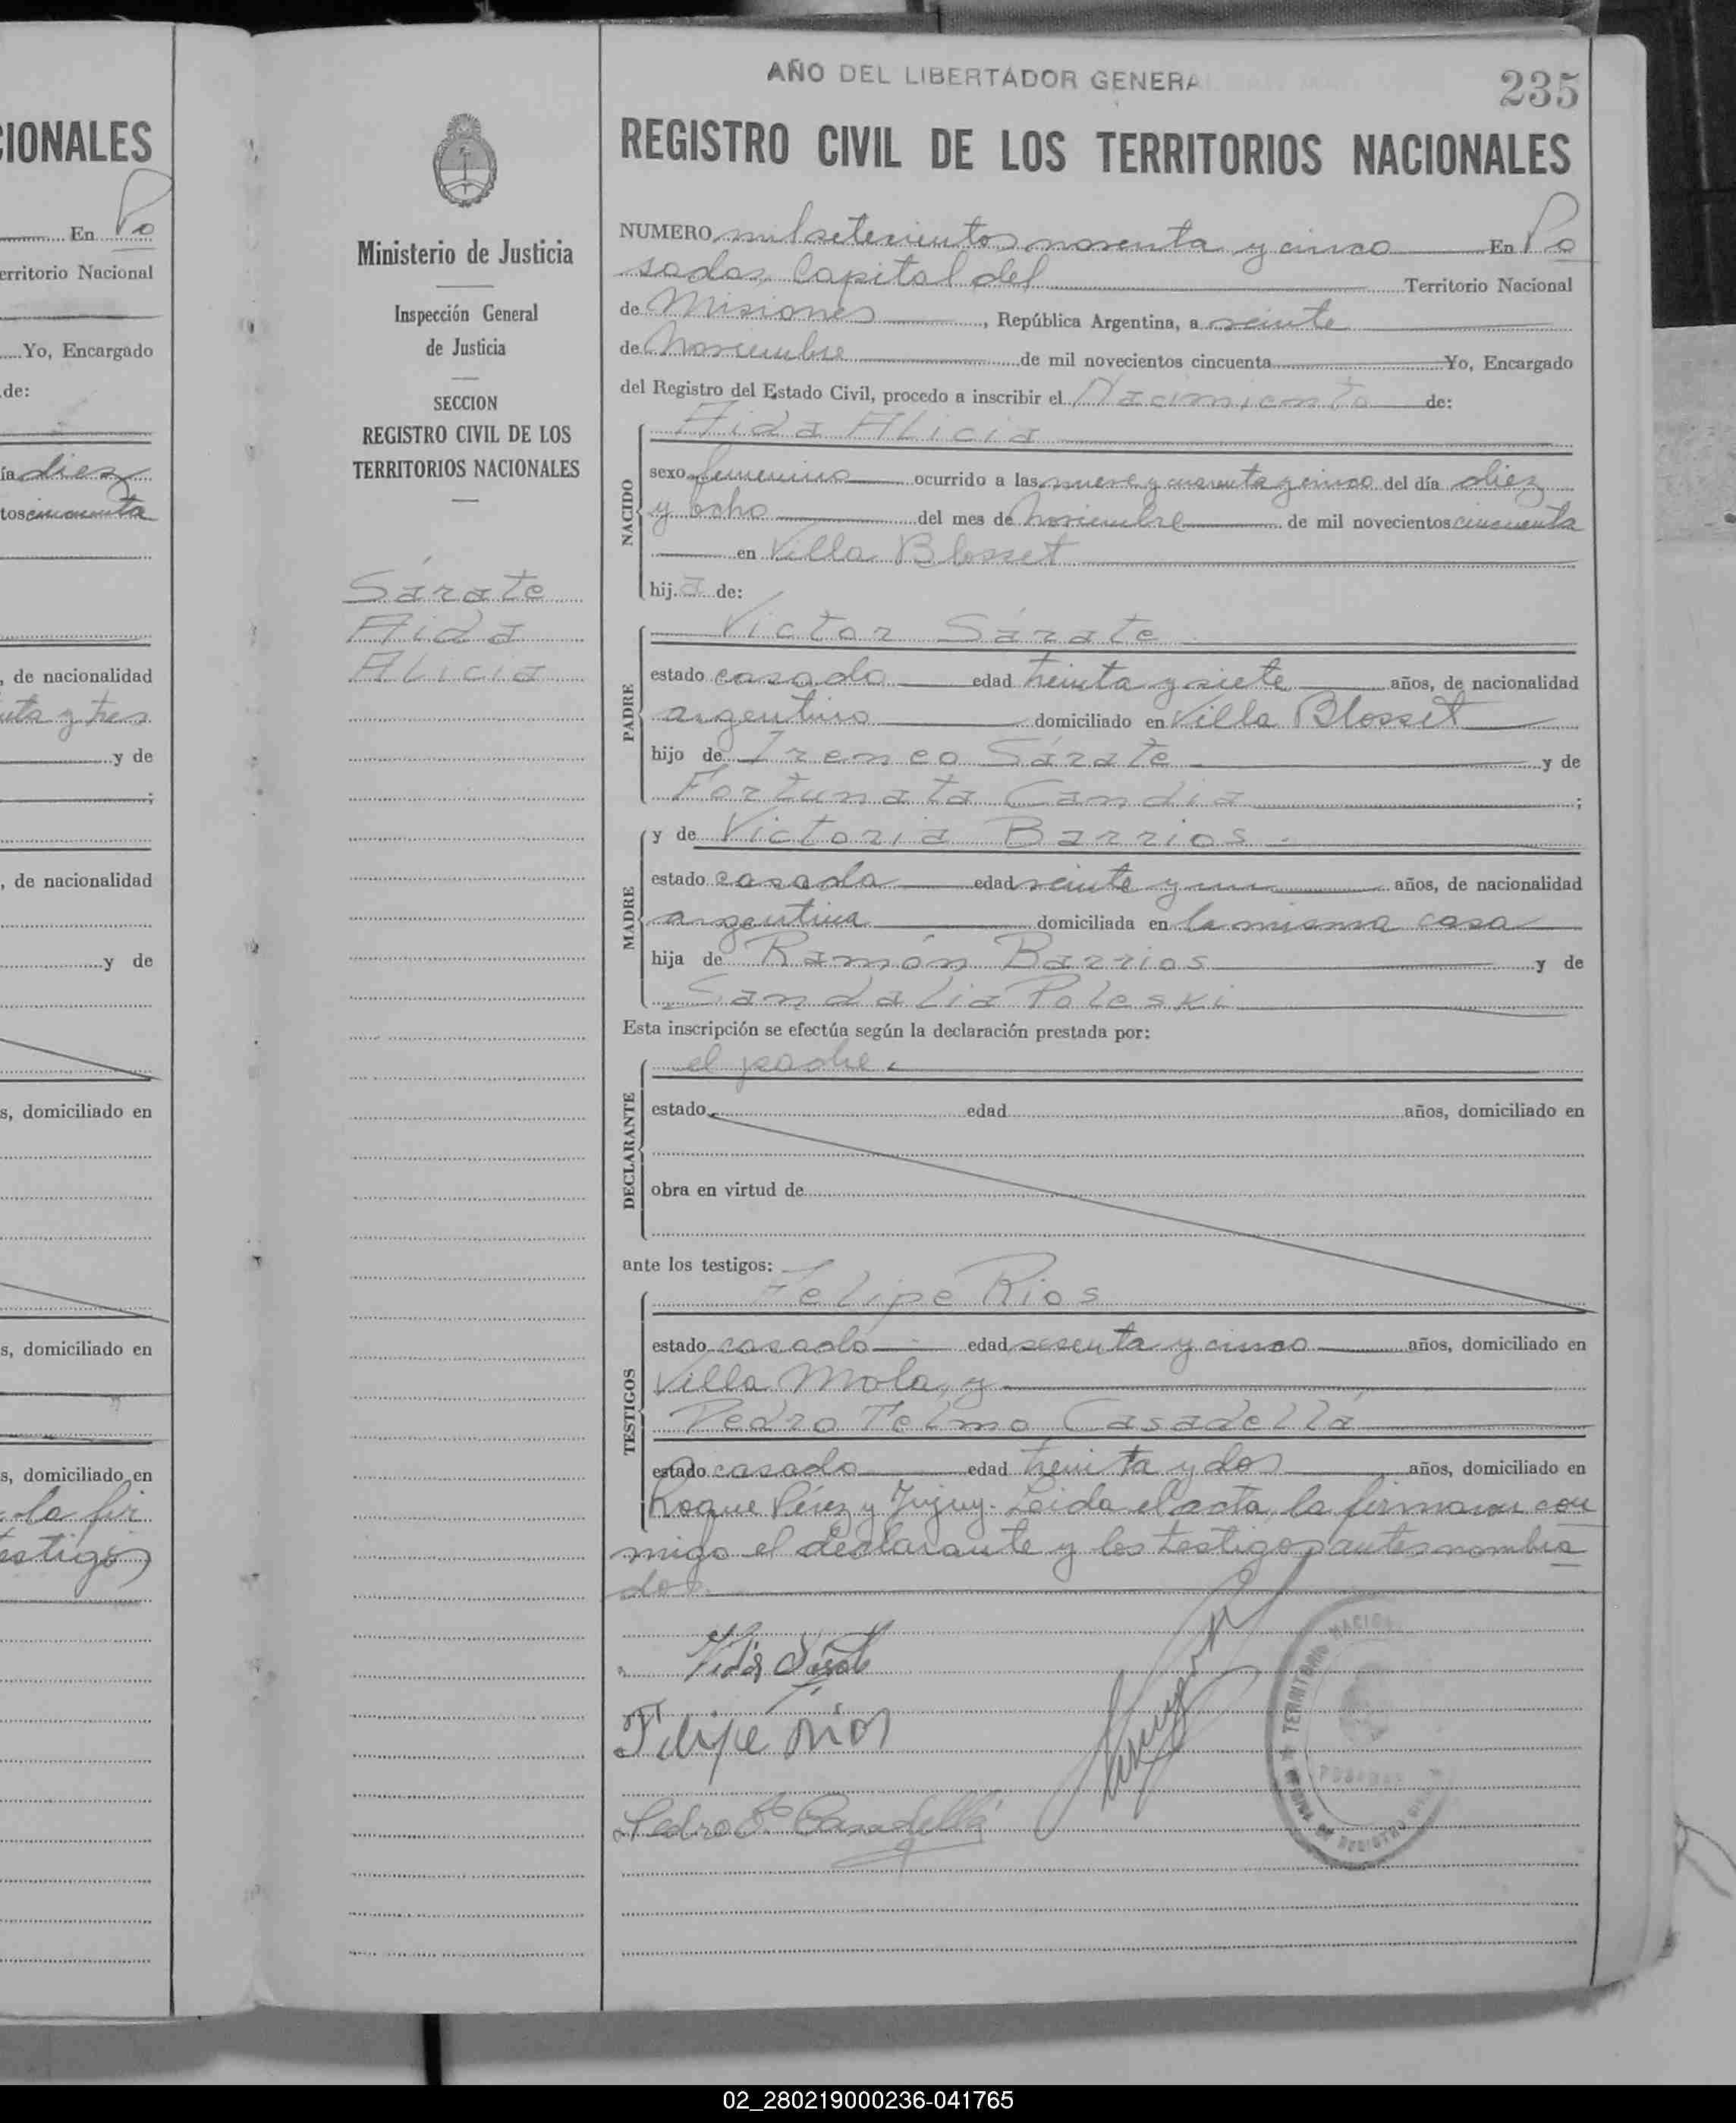 CIONALES
En Po
erritorio Nacional
Yo, Encargado
de:
ía diez
tos cincuenta
, de nacionalidad
nta y tres
y de
;
, de nacionalidad
y de
s, domiciliado en
s, domiciliado en
s, domiciliado en
la fir
estigos
Ministerio de Justicia
Inspección General
de Justicia
SECCION
REGISTRO CIVIL DE LOS
TERRITORIOS NACIONALES
Sárate
Aida
Alicia
AÑO DEL LIBERTADOR GENERAL SAN MARTIN
235
REGISTRO CIVIL DE LOS TERRITORIOS NACIONALES
NUMERO mil setecientos noventa y cinco En Po
sadas, Capital del Territorio Nacional
de Misiones, República Argentina, a veinte
de Noviembre de mil novecientos cincuenta Yo, Encargado
del Registro del Estado Civil, procedo a inscribir el Nacimiento de:
Aida Alicia
NACIDO
sexo femenino ocurrido a las nueve y cuarenta y cinco del día diez
y ocho del mes de Noviembre de mil novecientos cincuenta
en Villa Blosset
hija de:
Victor Sárate
PADRE
estado casado edad treinta y siete años, de nacionalidad
argentino domiciliado en Villa Blosset
hijo de Ireneo Sárate y de
Fortunata Candia ;
y de Victoria Barrios.
MADRE
estado casada edad veinte y un años, de nacionalidad
argentina domiciliada en la misma casa
hija de Ramón Barrios y de
Sandalia Poleski
Esta inscripción se efectúa según la declaración prestada por:
el padre.
DECLARANTE
estado edad años, domiciliado en
obra en virtud de
ante los testigos:
Felipe Rios
TESTIGOS
estado casado edad sesenta y cinco años, domiciliado en
Villa Mola, y
Pedro Telmo Casadellá
estado casado edad treinta y dos años, domiciliado en
Roque Pérez y Jujuy. Leida el acta, la firmaron con
migo el declarante y los testigos antes nombra
dos.
Felipe Rios
Pedro T. Casadellá
TERRITORIO NACIO
POSADAS
OFICINA DE REGISTRO CIVIL
02_280219000236-041765